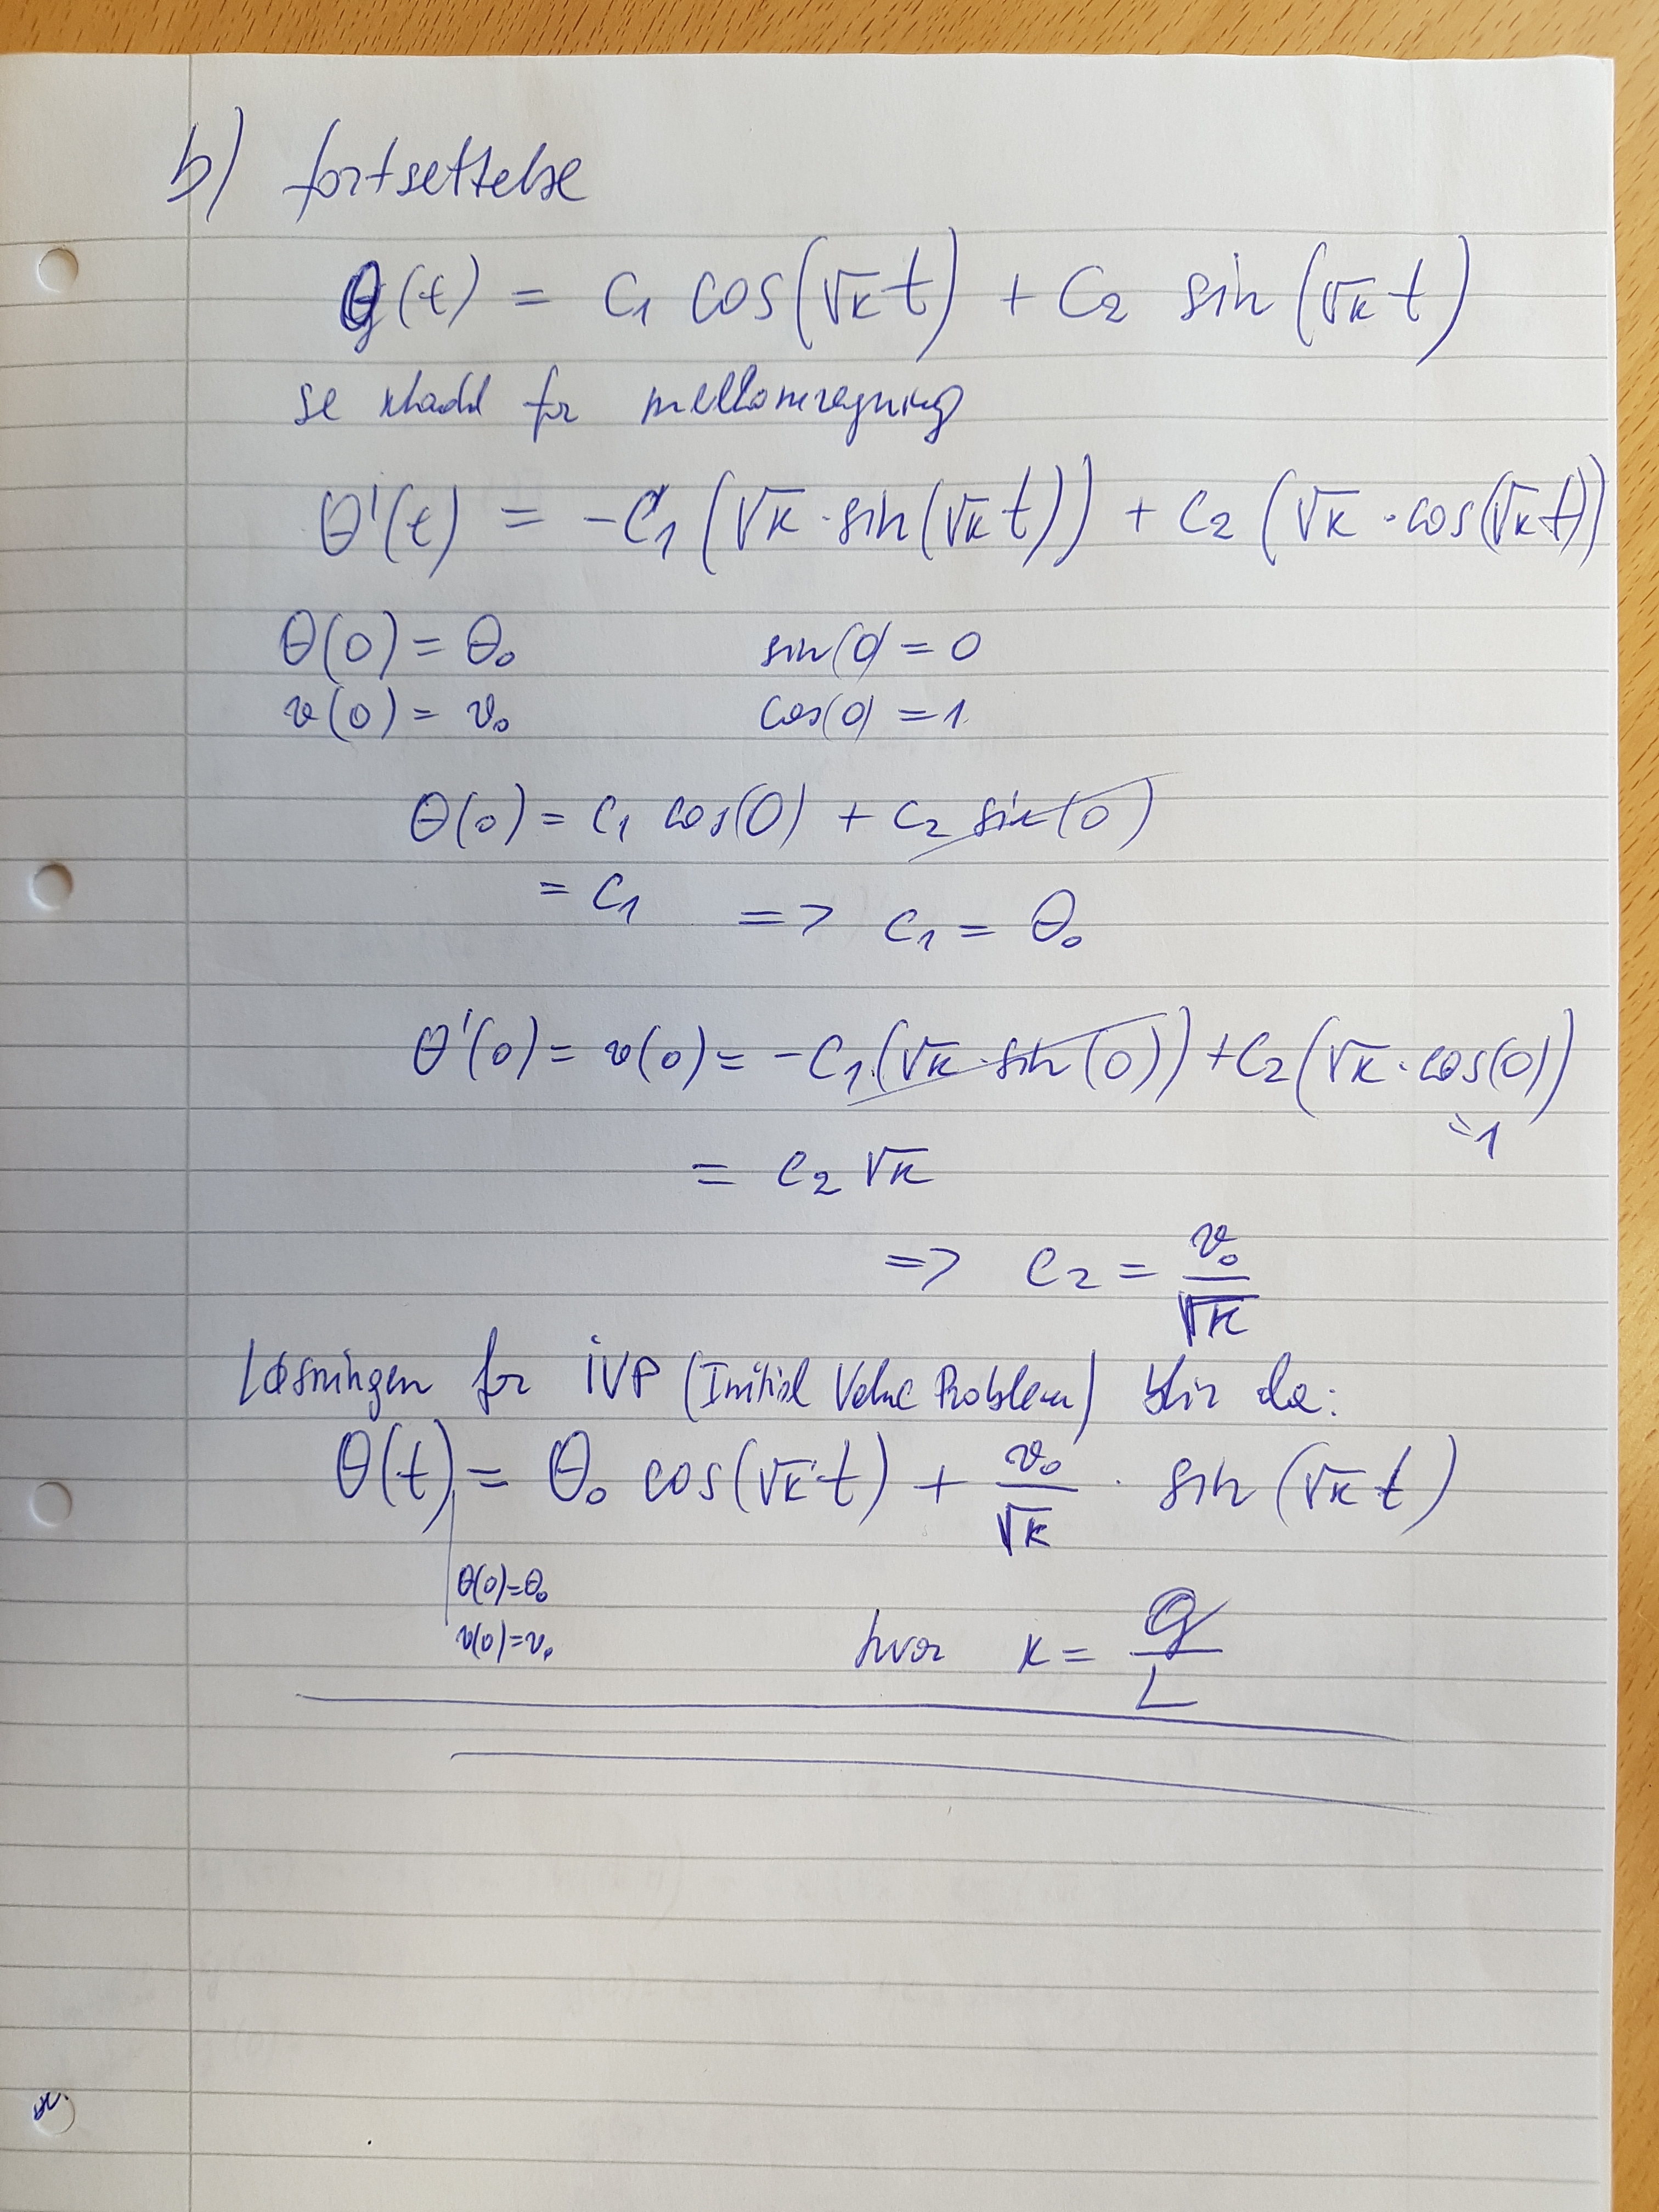 b) fortsettelse
θ(t) = C₁ cos(√k t) + C₂ sin(√k t)
se kladd for mellomregning
θ'(t) = -C₁(√k · sin(√k t)) + C₂(√k · cos(√k t))
θ(0) = θ₀ sin(0) = 0
v(0) = v₀ cos(0) = 1
θ(0) = C₁ cos(0) + C₂ sin(0)
= C₁ => C₁ = θ₀
θ'(0) = v(0) = -C₁(√k · sin(0)) + C₂(√k · cos(0))
=1
= C₂ √k
=> C₂ = v₀/√k
Løsningen for IVP (Initial Value Problem) blir da:
θ(t) = θ₀ cos(√k t) + v₀/√k · sin(√k t)
θ(0)=θ₀
v(0)=v₀
hvor k = g/L